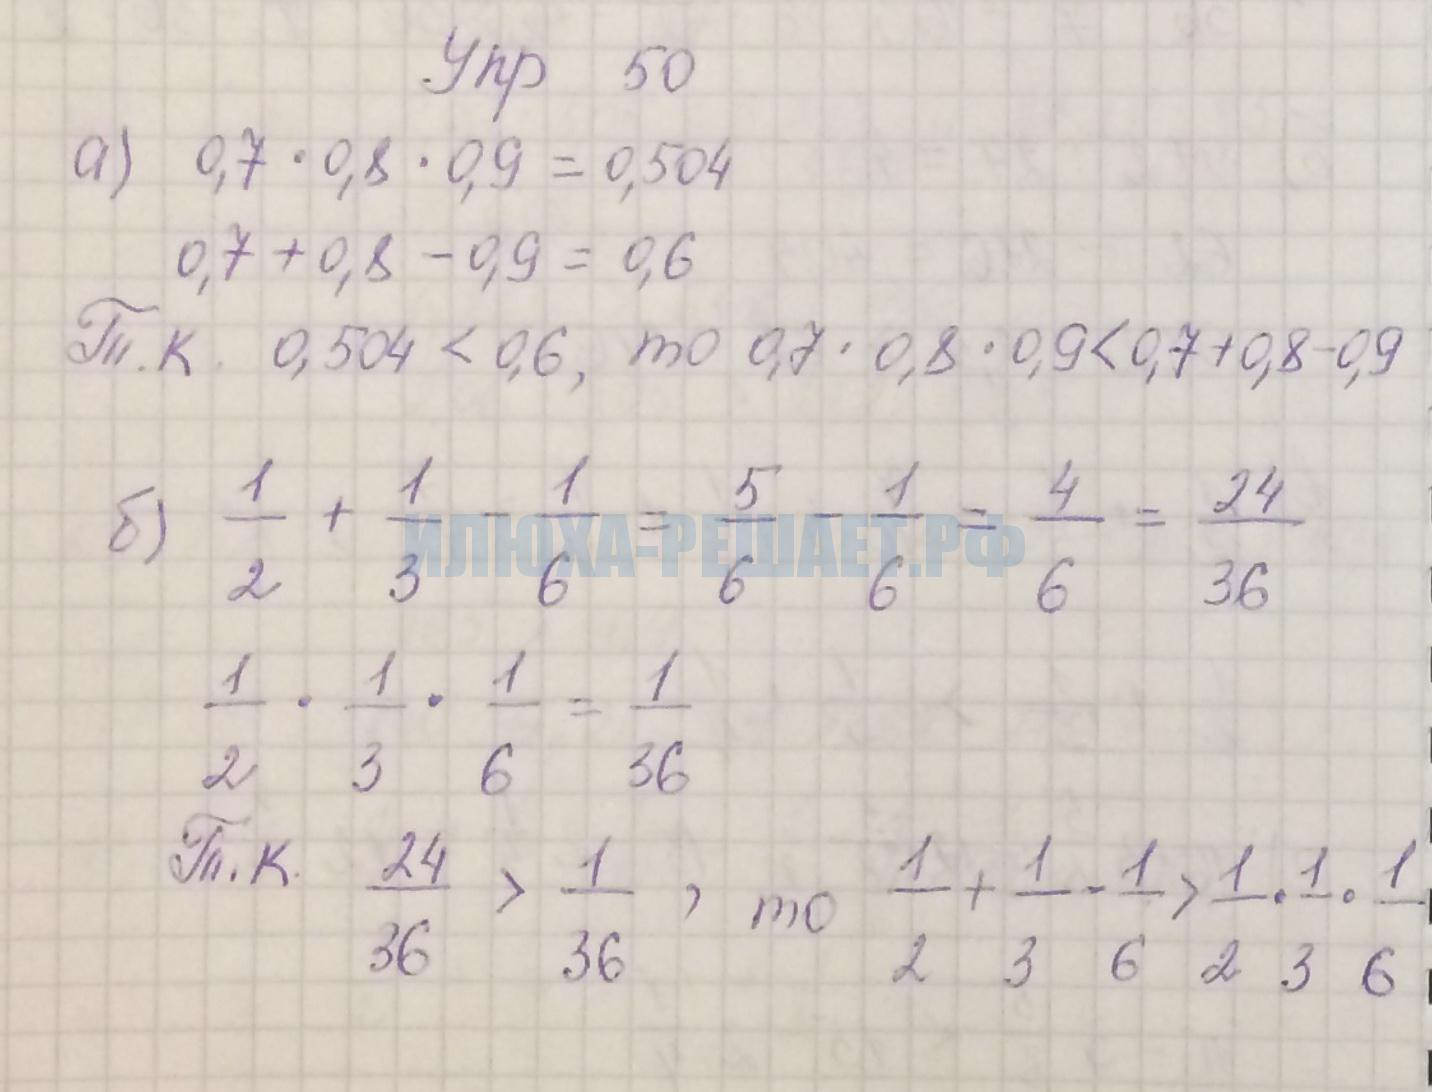 Упр 50
а) 0,7 · 0,8 · 0,9 = 0,504
0,7 + 0,8 - 0,9 = 0,6
Т.к. 0,504 < 0,6, то 0,7 · 0,8 · 0,9 < 0,7 + 0,8 - 0,9
б) 1/2 + 1/3 - 1/6 = 5/6 - 1/6 = 4/6 = 24/36
ИЛЮХА-РЕШАЕТ.РФ
1/2 · 1/3 · 1/6 = 1/36
Т.к. 24/36 > 1/36, то 1/2 + 1/3 - 1/6 > 1/2 · 1/3 · 1/6